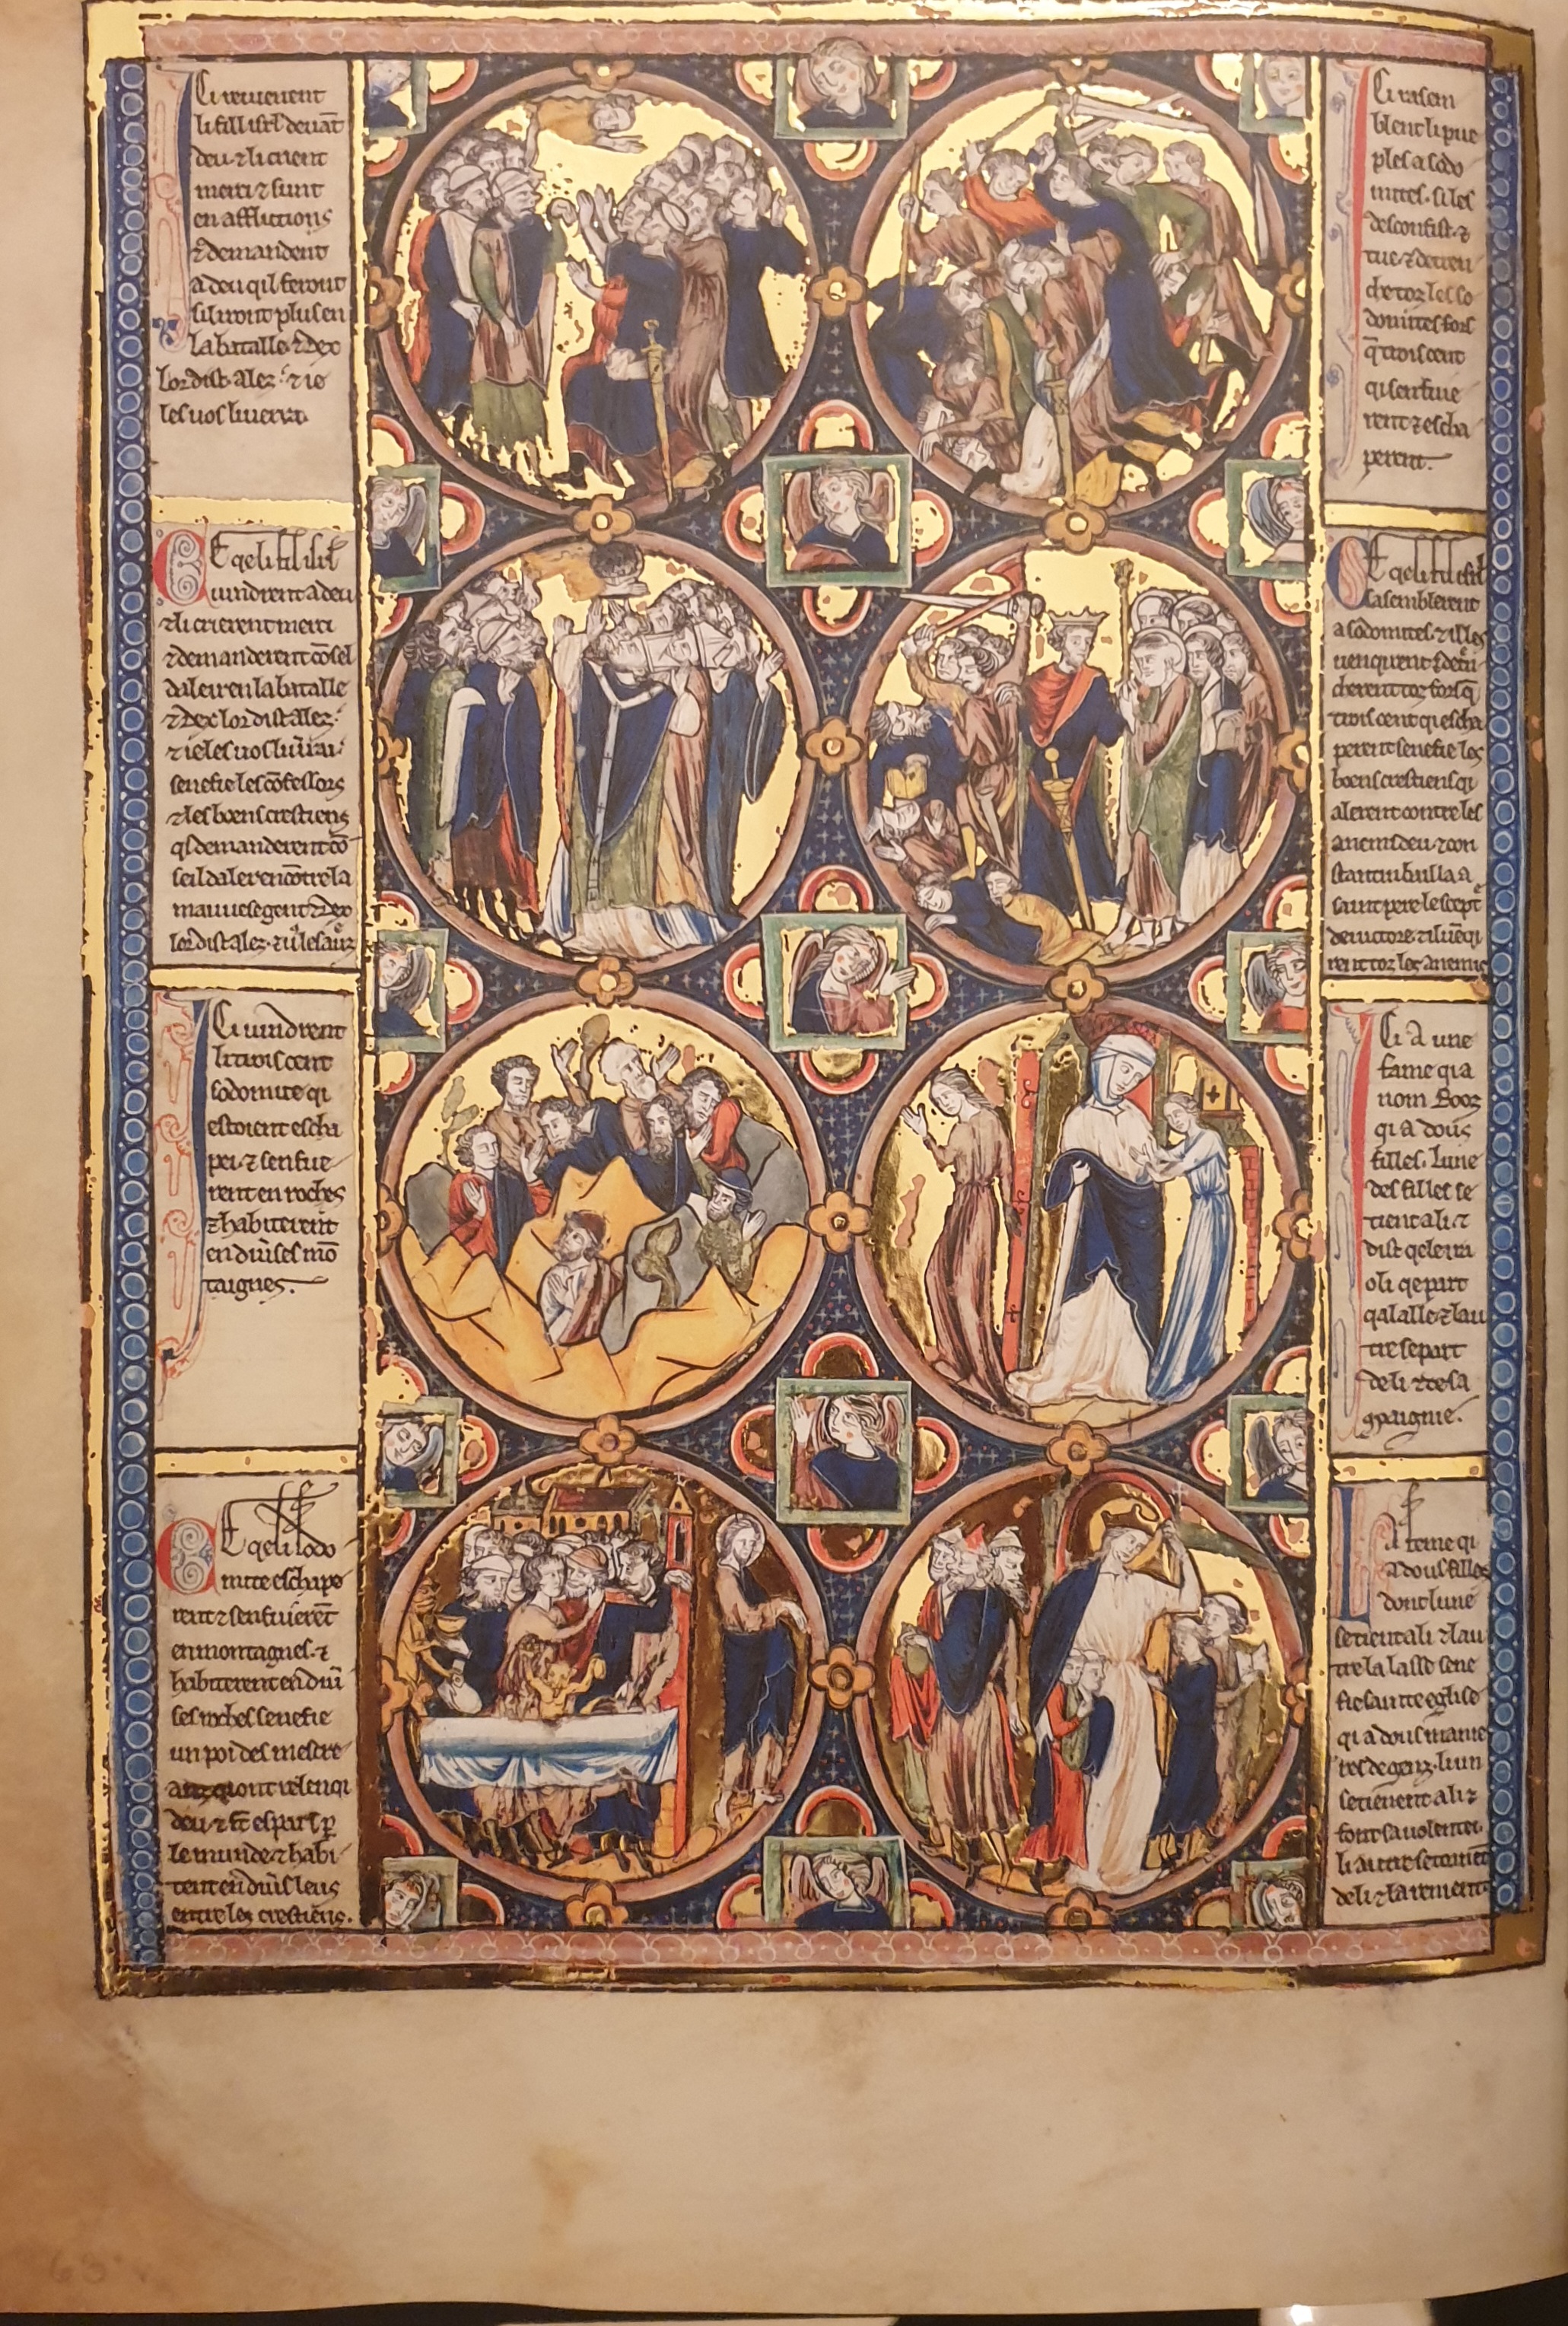 Ci reuienent
li fill isrl deuāt
deu ⁊ li crient
merci ⁊ sunt
en afflictions
⁊ demandent
a deu qil feront
sil iront plus en
la batalle ⁊ dex
lor dist alez ⁊ ie
les uos liuerai.
Ce qe li fil isrl
uindrent a deu
⁊ li crierent merci
⁊ demanderent cōsel
daler en la batalle
⁊ dex lor dist alez
⁊ ie les uos liurai
senefie les cōfessors
⁊ les boens crestiens
qi demanderent cō
seil daler encōtre la
mauuese gent ⁊ dex
lor dist alez
Ci uindrent
li trois cent
sodomite qi
estoient escha
pei ⁊ sen fue
rent en roches
⁊ habiterent
en diuses mō
taignes.
Ce qe li sodo
mite eschape
rent ⁊ sen fuierēt
en montagnes ⁊
habiterent en diu
ses roches senefie
un poi des mescre
anz qi ont relenqi
deu ⁊ st espars p
le munde ⁊ habi
tent en diuis leus
entre les crestiens.
Ci rasem
blent li pue
ples a sodo
mites si les
desconfist ⁊
tue ⁊ detren
che toz les so
domites fors
q̄ trois cent
qi sen fuie
rent ⁊ escha
perent.
Ce qe li fil isrl
sasemblerent
a sodomites ⁊ il les
uenquirent ⁊ detrē
cherent toz fors q̄
trois cent qi escha
perent senefie les
boens crestiens qi
alerent contre les
anemis deu ⁊ con
stantin bailla a
saint pere le sceptr
de uictore ⁊ il uēqi
rent toz les anemis
Ci a une
fame qi a
nom Booz
qi a dous
filles. lune
des filles se
tient a li ⁊
dist qele ira
o li qe part
qal alle ⁊ lau
tre se part
de li ⁊ de sa
cōpaignie.
La feme qi
a dous filles
dont lune
se tient a li ⁊ lau
tre la lasse sene
fie sainte eglise
qi a dous manie
res de genz. li un
se tienent a li ⁊
font sa uolentei
li autre se tornēt
de li ⁊ la